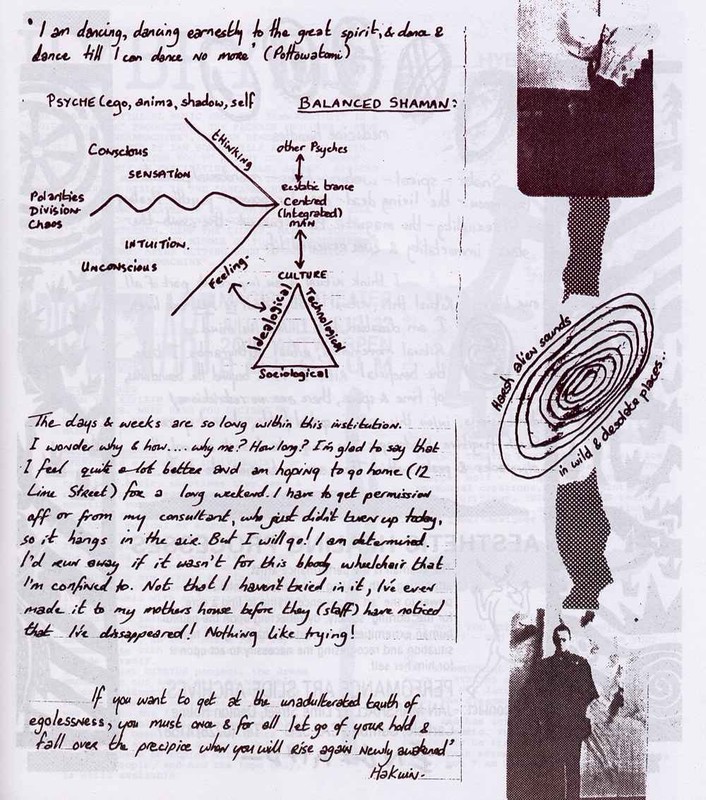 "I am dancing, dancing earnestly to the great spirit, & dance &
dance till I can dance no more" (Pottowatomi)
PSYCHE (ego, anima, shadow, self
BALANCED SHAMAN:
thinking
Conscious
SENSATION
other Psyches
ecstatic trance
Centred
(Integrated)
MAN
Polarities
Division-
Chaos
INTUITION.
Unconscious
Feeling-
CULTURE
Idealogical
Technological
Sociological
Harch alien sounds
in wild & desolate places...
The days & weeks are so long within this institution.
I wonder why & how.... why me? How long? I'm glad to say that
I feel quite a lot better and am hoping to go home (12
Lime Street) for a long weekend. I have to get permission
off or from my consultant, who just didn't turn up today,
so it hangs in the air. But I will go! I am determined.
I'd run away if it wasn't for this bloody wheelchair that
I'm confined to. Not that I haven't tried in it, I've even
made it to my mothers house before they (staff) have noticed
that I've dissappeared! Nothing like trying!
If you want to get at the unadulterated truth of
egolessness, you must once & for all let go of your hold &
fall over the precipice when you will rise again newly awakened"
Hakuin-